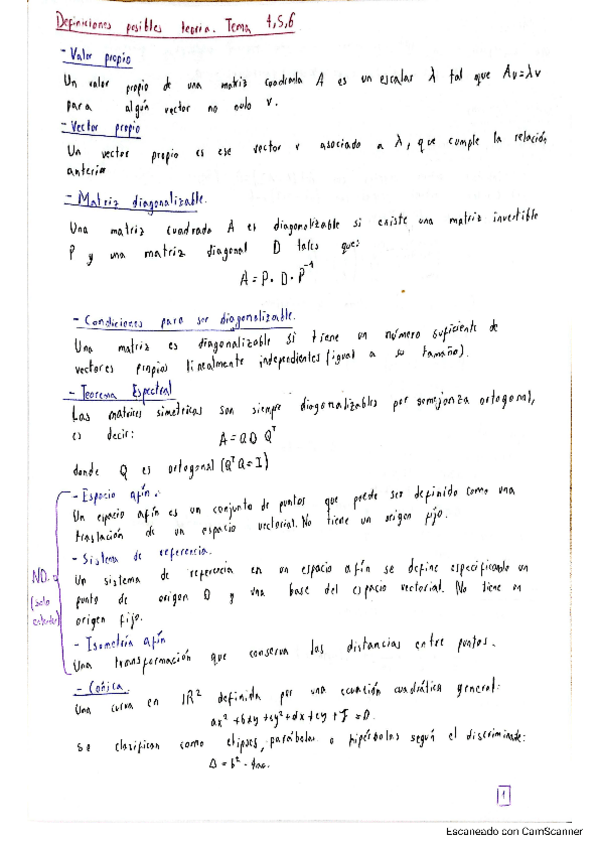 Definiciones posibles teoria. Tema 4,5,6
- Valor propio
Un valor propio de una matriz cuadrada A es un escalar λ tal que Av=λv
para algún vector no nulo v.
- Vector propio
Un vector propio es ese vector v asociado a λ, que cumple la relación
anterior
- Matriz diagonalizable.
Una matriz cuadrada A es diagonalizable si existe una matriz invertible
P y una matriz diagonal D tales que:
A = P · D · P⁻¹
- Condiciones para ser diagonalizable.
Una matriz es diagonalizable si tiene un número suficiente de
vectores propios linealmente independientes (igual a su tamaño).
- Teorema Espectral
Las matrices simetricas son siempre diagonalizables por semejanza ortogonal,
es decir:
A = QD Qᵀ
donde Q es ortogonal (QᵀQ = I)
- Espacio afín.
Un espacio afín es un conjunto de puntos que puede ser definido como una
traslación de un espacio vectorial. No tiene un origen fijo.
- Sistema de referencia.
Un sistema de referencia en un espacio afín se define especificando un
punto de origen O y una base del espacio vectorial. No tiene un
origen fijo.
NO.
(solo
- Isometría afín
Una transformación que conserva las distancias entre puntos.
- Cónica.
Una curva en IR² definida por una ecuación cuadrática general:
ax² + bxy + cy² + dx + ey + F = 0.
se clasifican como elipses, parábolas o hipérbolas según el discriminante:
Δ = b² - 4ac.
1
Escaneado con CamScanner